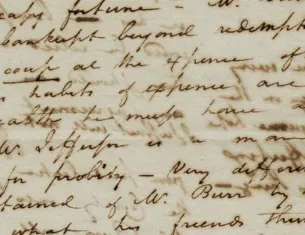 easy fortune – Mr.
bankrupt beyond redemption
coup at the expence of
habits of expence are
wealth he must have
Mr. Jefferson is a man
for probity – Very differe
tained of Mr. Burr by
what his friends think